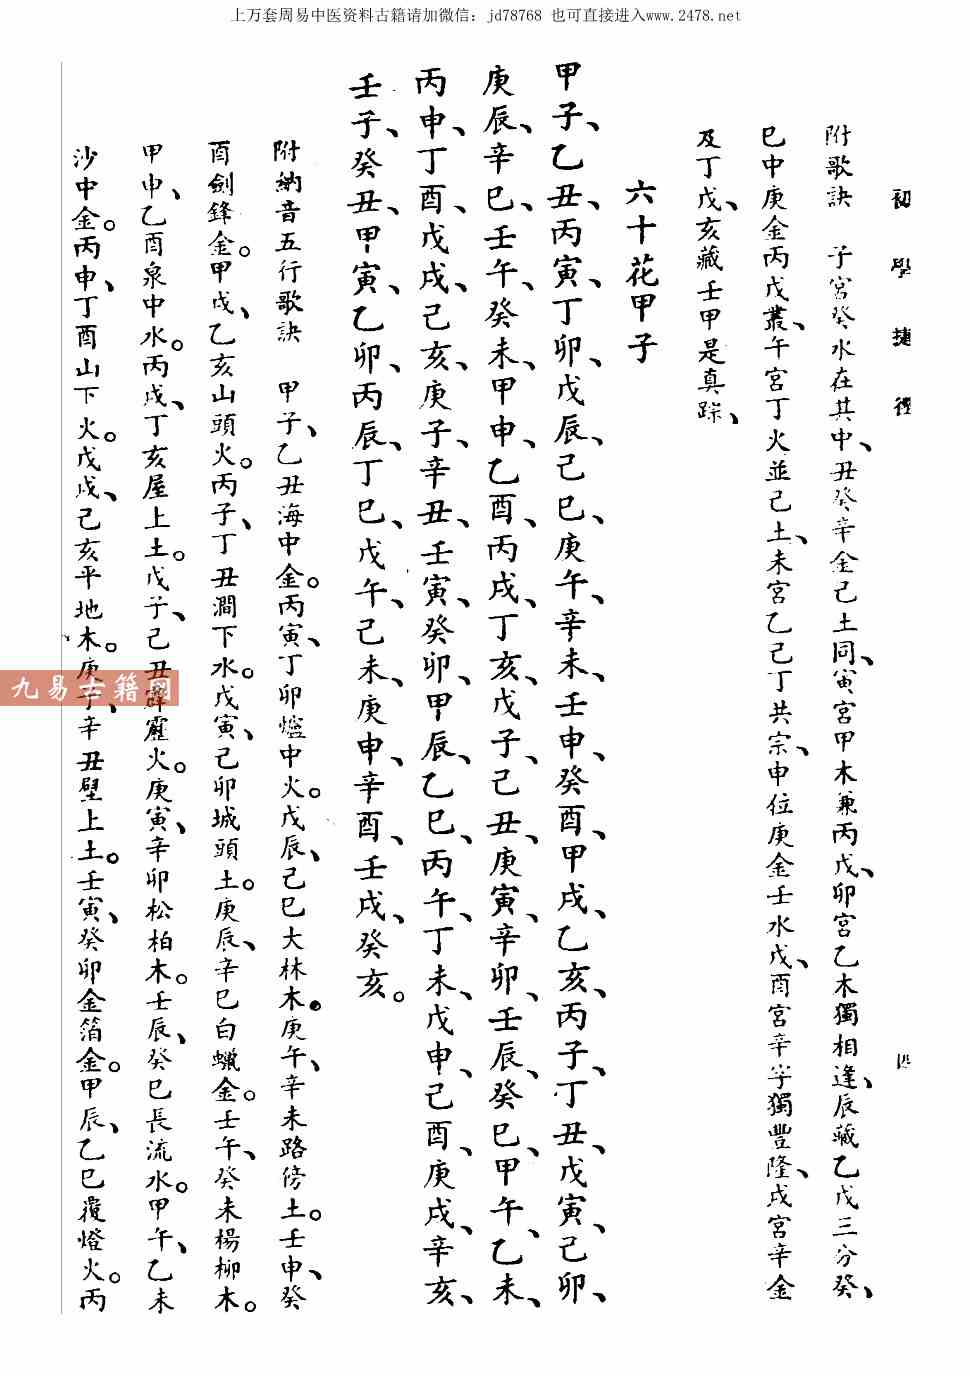 上万套周易中医资料古籍请加微信：jd78768 也可直接进入www.2478.net
初學捷徑
四
附歌訣　子宮癸水在其中、丑癸辛金己土同、寅宮甲木兼丙戊、卯宮乙木獨相逢、辰藏乙戊三分癸、
巳中庚金丙戊叢、午宮丁火並己土、未宮乙己丁共宗、申位庚金壬水戊、酉宮辛字獨豐隆、戌宮辛金
及丁戊、亥藏壬甲是真踪、
六十花甲子
甲子、乙丑、丙寅、丁卯、戊辰、己巳、庚午、辛未、壬申、癸酉、甲戌、乙亥、丙子、丁丑、戊寅、己卯、
庚辰、辛巳、壬午、癸未、甲申、乙酉、丙戌、丁亥、戊子、己丑、庚寅、辛卯、壬辰、癸巳、甲午、乙未、
丙申、丁酉、戊戌、己亥、庚子、辛丑、壬寅、癸卯、甲辰、乙巳、丙午、丁未、戊申、己酉、庚戌、辛亥、
壬子、癸丑、甲寅、乙卯、丙辰、丁巳、戊午、己未、庚申、辛酉、壬戌、癸亥。
附納音五行歌訣　甲子、乙丑海中金。丙寅、丁卯爐中火。戊辰、己巳大林木。庚午、辛未路傍土。壬申、癸
酉劍鋒金。甲戌、乙亥山頭火。丙子、丁丑澗下水。戊寅、己卯城頭土。庚辰、辛巳白蠟金。壬午、癸未楊柳木。
甲申、乙酉泉中水。丙戌、丁亥屋上土。戊子、己丑霹靂火。庚寅、辛卯松柏木。壬辰、癸巳長流水。甲午、乙未
沙中金。丙申、丁酉山下火。戊戌、己亥平地木。庚子、辛丑壁上土。壬寅、癸卯金箔金。甲辰、乙巳覆燈火。丙
九易古籍网